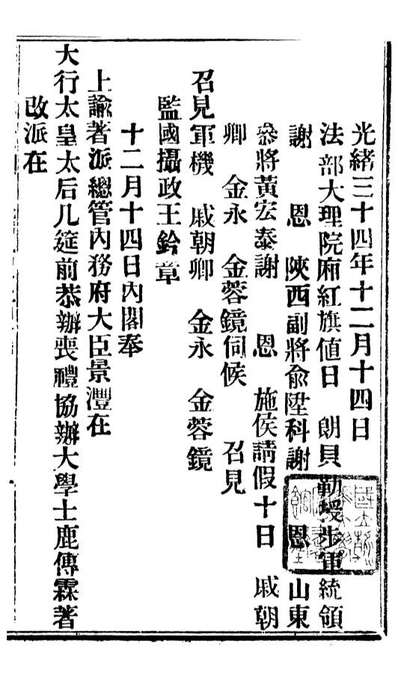 光緒三十四年十二月十四日
法部大理院廂紅旗值日　朗貝勒毓步軍統領
謝　恩　陝西副將俞陞科謝　恩　山東
叅將黃宏泰謝　恩　施侯請假十日　戚朝
卿　金永　金蓉鏡伺候　召見
召見軍機　戚朝卿　金永　金蓉鏡
監國攝政王鈐章
十二月十四日內閣奉
上諭著派總管內務府大臣景灃在
大行太皇太后几筵前恭辦喪禮協辦大學士鹿傳霖著
改派在